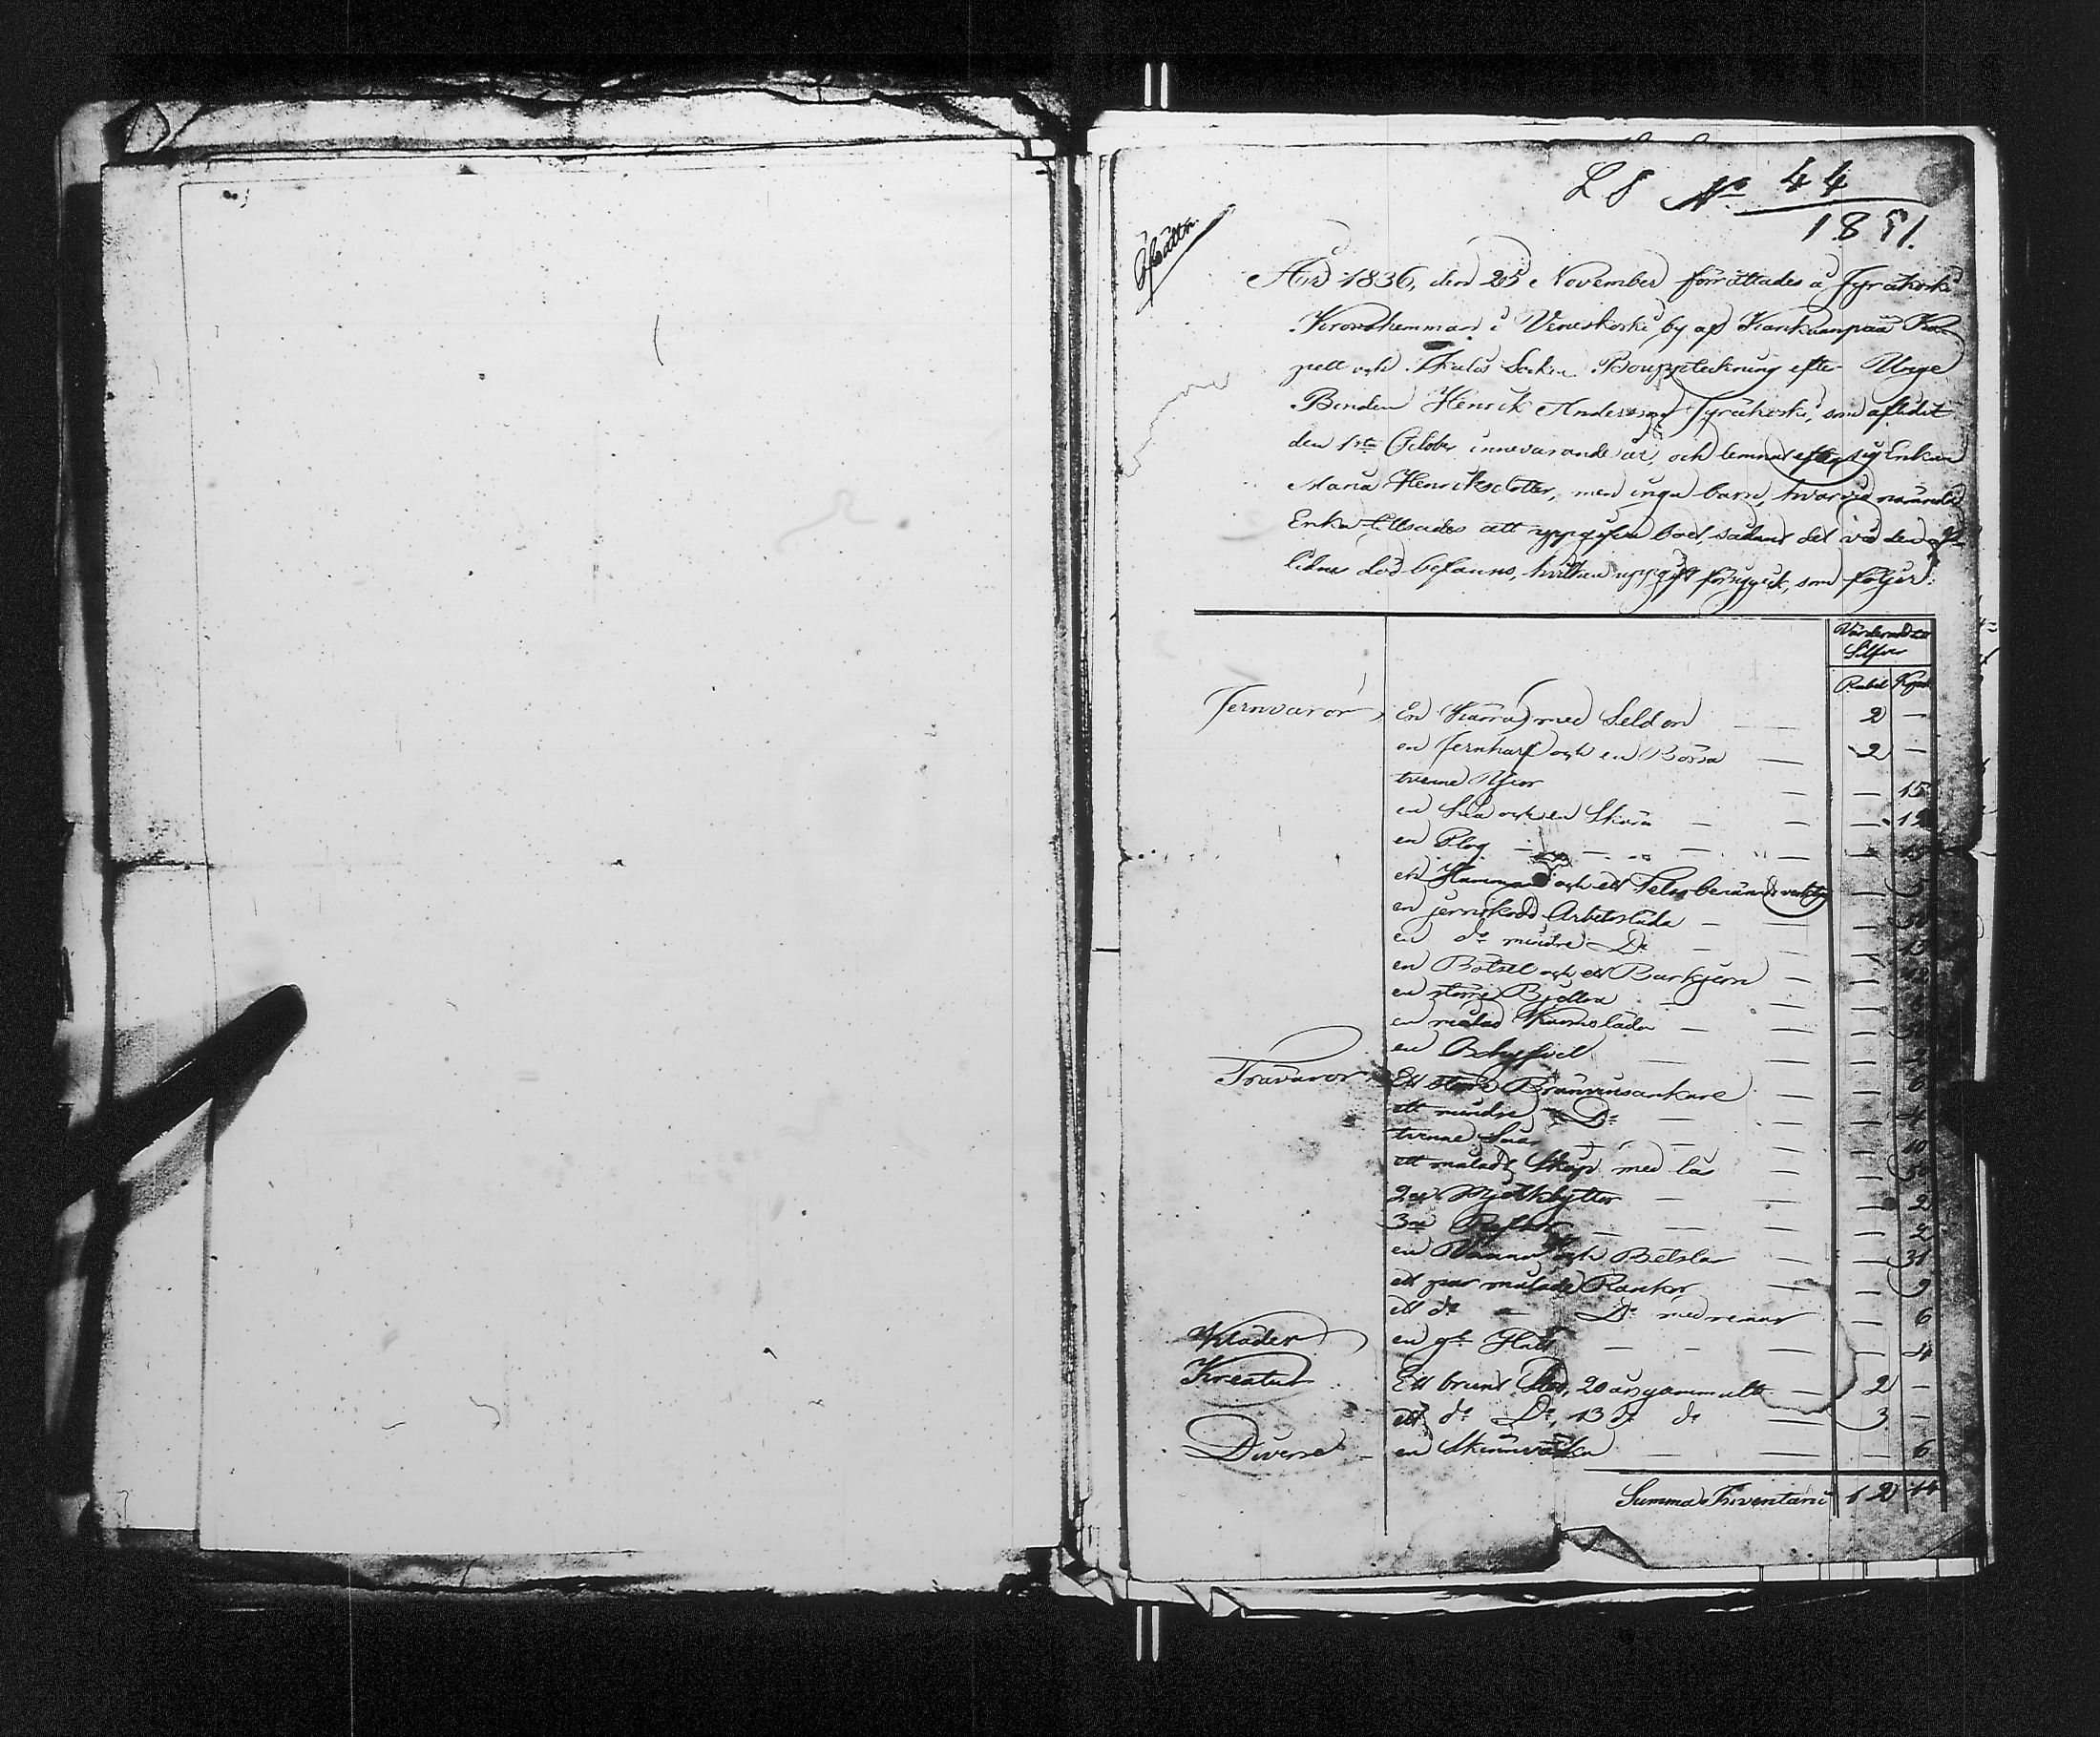 L S No 44
1851.
År 1836, den 25 November förrättades å Jyräkoski
Kronohemman i Veneskoski by af Kankaanpää Ka-
pell och Ikalis Sockn Bouppteckning efter Unge
Bonden Henrik Andersson Jyräkoski, som aflidit
den 1sta October innevarande år, och lemnat efter sig Enkan
Maria Henriksdotter, men inga barn, hvarvid nämnde
Enka tillsades att uppgifva boet, sådant det vid den af-
lidnes död befanns, hvilken uppgift försiggick, som följer:
Värderadt
Silfver
Rubel Kop
Jernvaror, En Kärra med Seldon — 2 —
en Jernharf och en Bössa — 2 —
trenne Yxor — — 15
en Lia och en Skära — — 12
en Plog — — 15
en Hammare och ett — 5
en jernskodd Arbetsslåda — —
en do mindre Do — —
en Betsel och ett Barkjern — —
en större Bjellra — —
en målad — —
en — —
Trävaror, Ett större Bränvinsankare — — 6
ett mindre Do — — 4
trenne Såar — — 10
ett måladt Skåp med lås — — 50
2ne Mjölkbyttor — — 2
3ne — — 2
en och Betslar — — 31
ett par målade Rankor — — 9
ett do Do med remar — 6
Kläder en gl Hatt — — 4
Kreatur Ett brunt Sto, 20 års gammalt — 2 —
ett do Do, 13 d. do — 3 —
Diverse en Skinnväska — — 6
Summa Inventarii 12 14